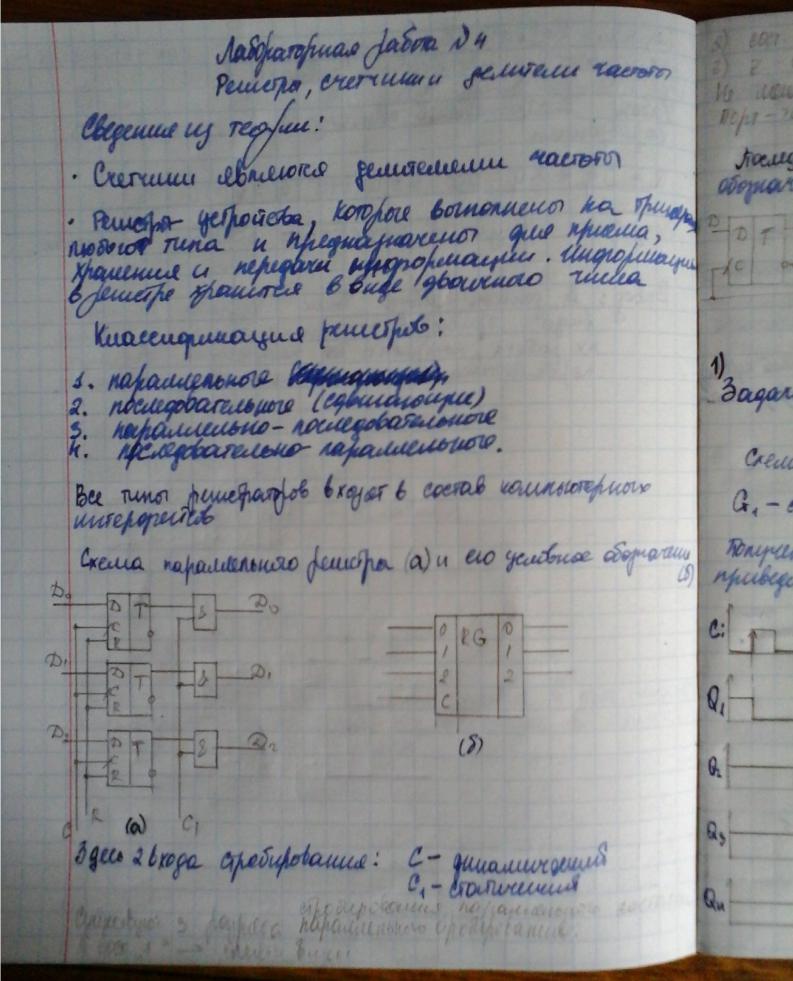 Лабораторная работа №4
Регистры, счетчики и делители частоты
Сведения из теории:
· Счетчики являются делителями частоты
· Регистр устройства, которые выполнены на триггерах
любого типа и предназначены для приема,
хранения и передачи информации. Информация
в регистре хранится в виде двоичного числа
Классификация регистров:
1. параллельного
2. последовательного (сдвигающие)
3. параллельно-последовательного
4. последовательно-параллельного.
Все типы регистраторов входят в состав компьютерных
интерфейсов
Схема параллельного регистра (а) и его условное обозначение
(б)
D0 D T & D0
C
R
D1 D T & D1
C
R
D2 D T & D2
C
R
C R (а) C1
0 RG 0
1 1
2 2
C
(б)
Здесь 2 входа стробирования: C – динамический
C1 – статический
стробирования
3
параллельного
Послед
обознач
D D T
C
1)
Задан
Схем
G1 –
Получен
приведе
Ci
Q1
Q2
Q3
Q4